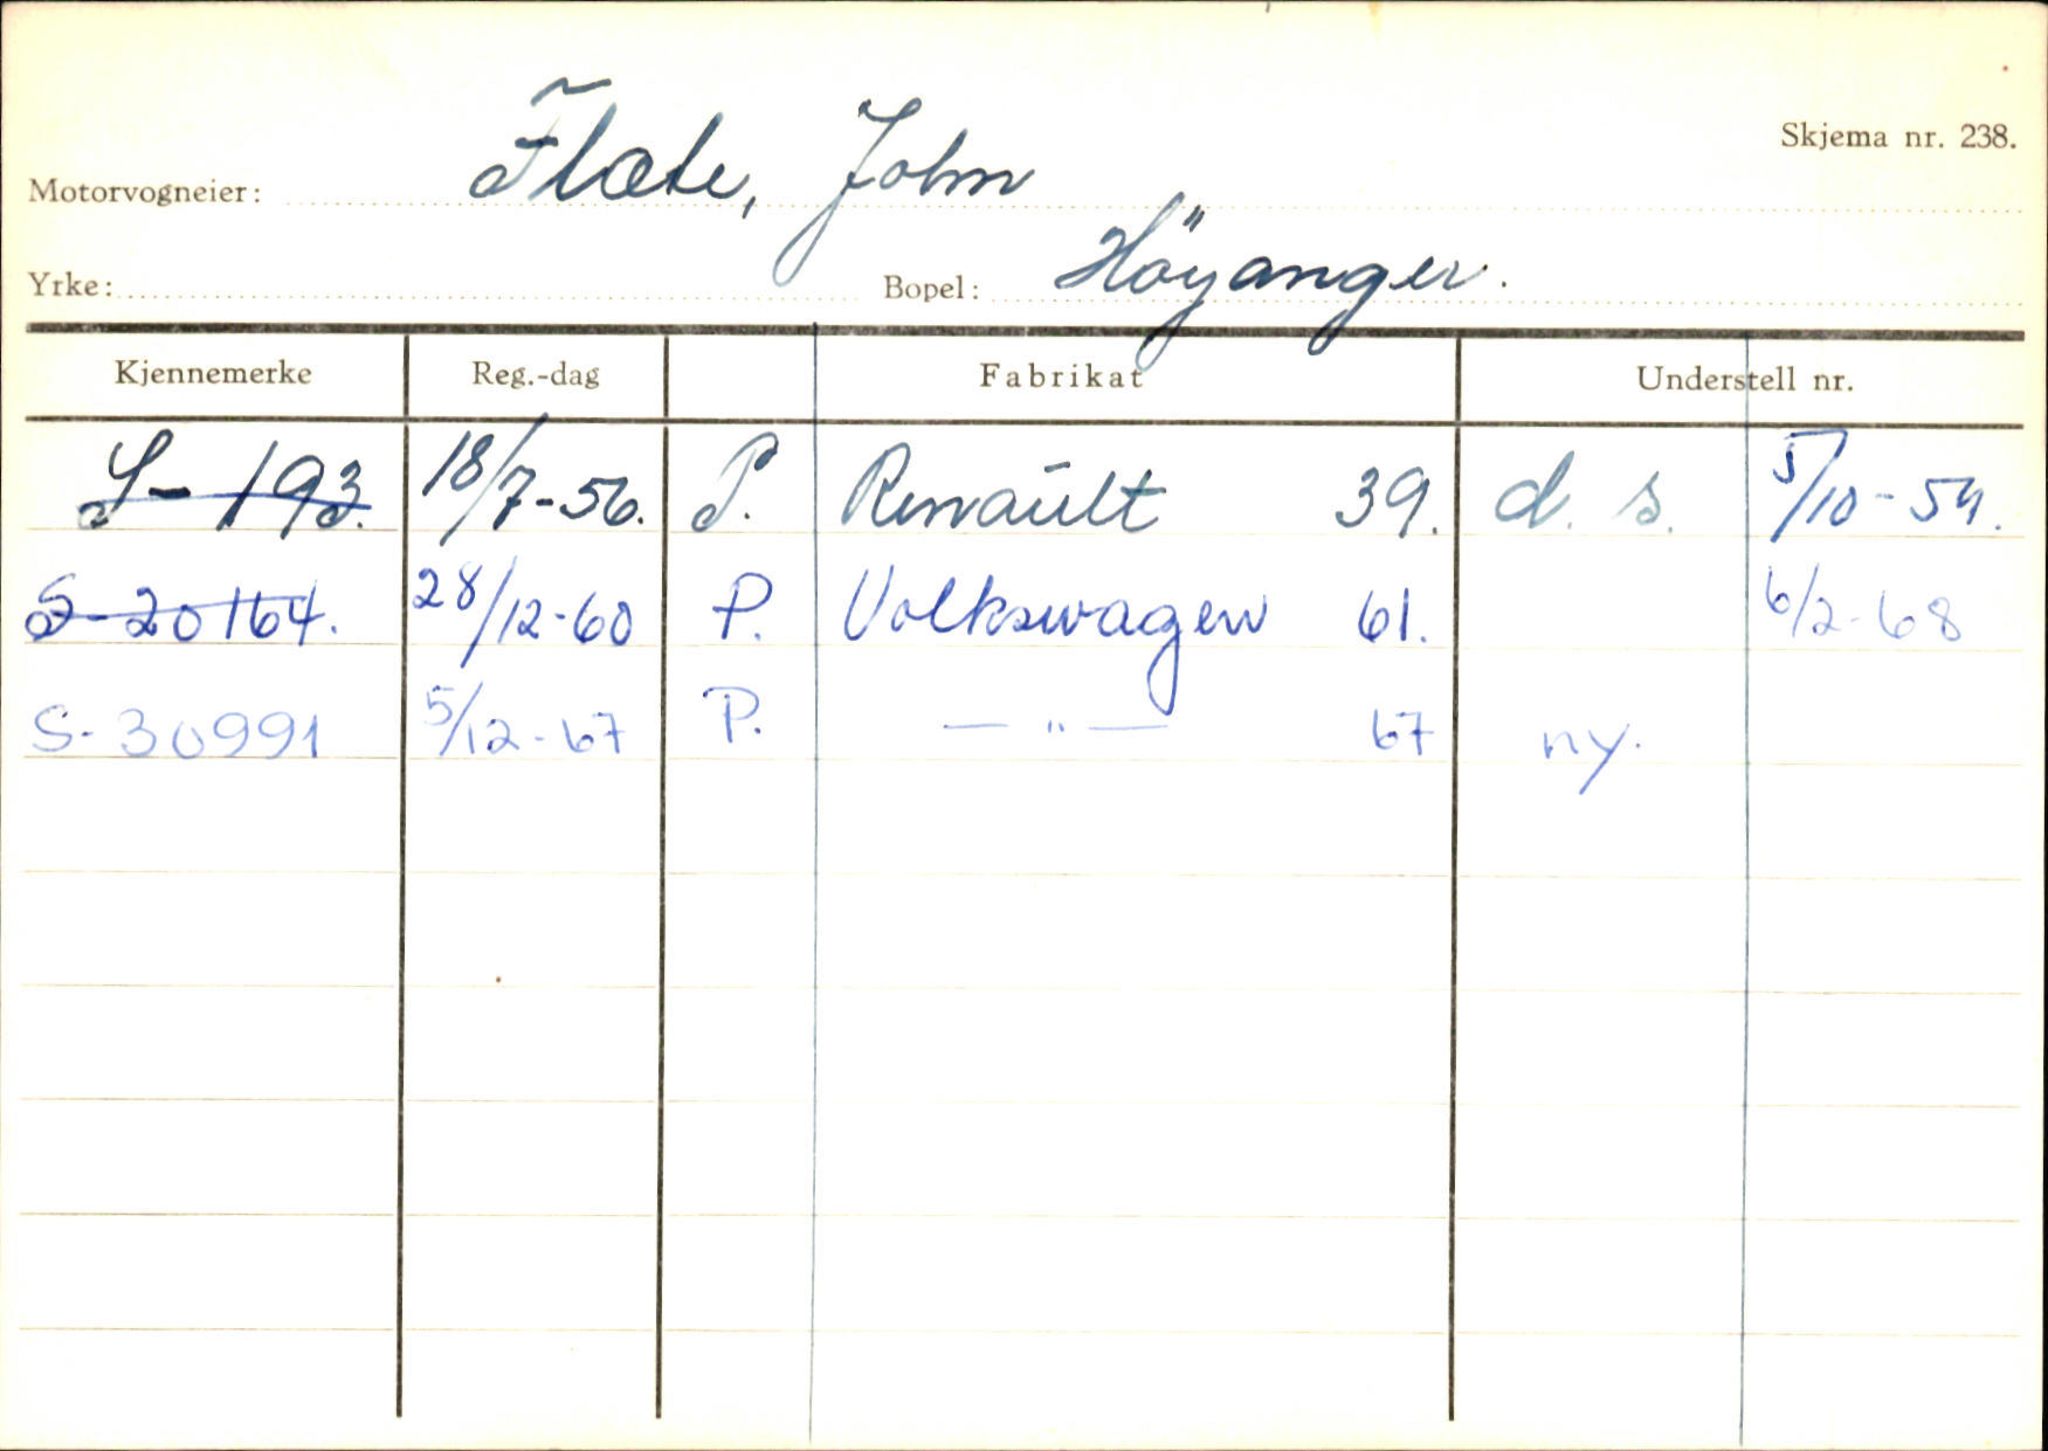 Skjema nr. 238.
Motorvogneier: Flæte, John
Yrke: Bopel: Höyanger.
Kjennemerke Reg.-dag Fabrikat Understell nr.
S-193. 18/7-56. P. Renault 39. d. s. 5/10-59.
S-20164. 28/12-60 P. Volkswagen 61. 6/2-68
S-30991 5/12-67 P. —〃— 67 ny.